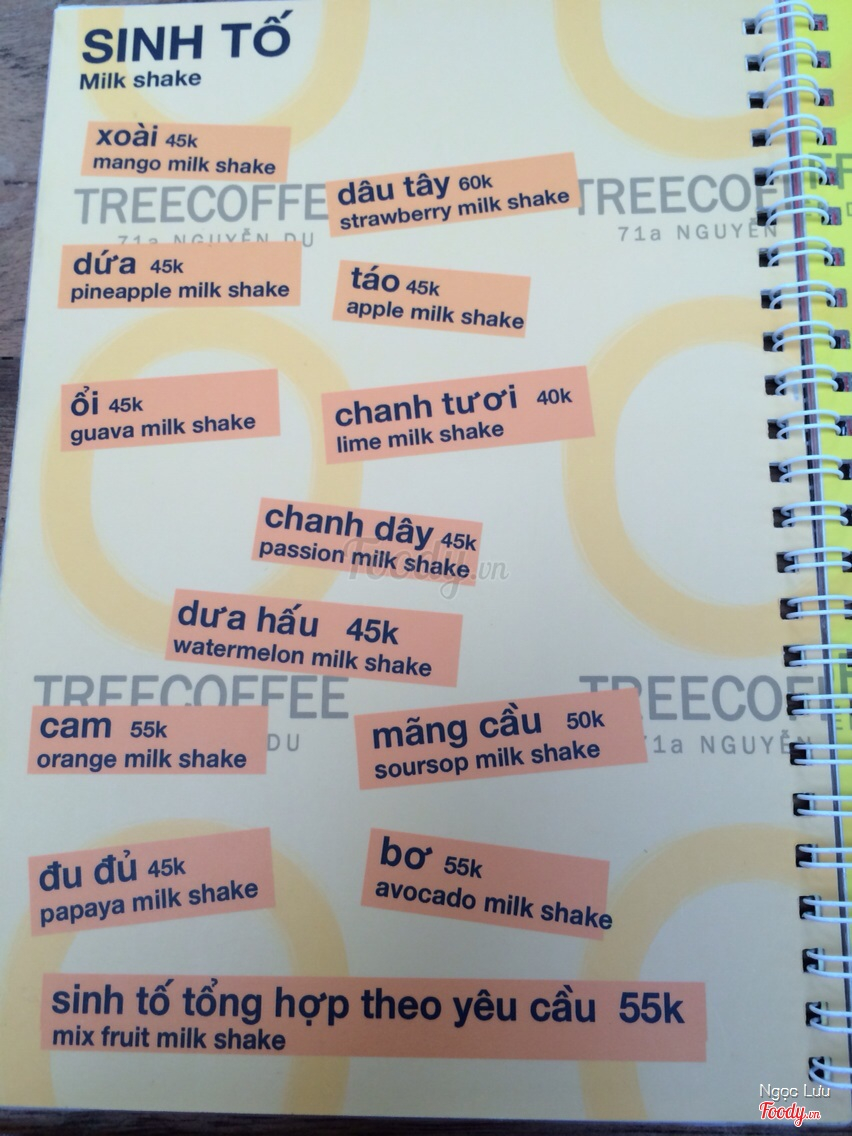 SINH TỐ
Milk shake
xoài 45k
mango milk shake
TREECOFFE
dâu tây 60k
strawberry milk shake
TREECOF
71a NGUYỄN DU
71a NGUYỄN
dứa 45k
pineapple milk shake
táo 45k
apple milk shake
ổi 45k
guava milk shake
chanh tươi 40k
lime milk shake
chanh dây 45k
passion milk shake
Foody.vn
dưa hấu 45k
watermelon milk shake
TREECOFFEE
TREECOF
cam 55k
orange milk shake
DU
mãng cầu 50k
soursop milk shake
71a NGUYỄN
đu đủ 45k
papaya milk shake
bơ 55k
avocado milk shake
sinh tố tổng hợp theo yêu cầu 55k
mix fruit milk shake
Ngọc Lưu
Foody.vn